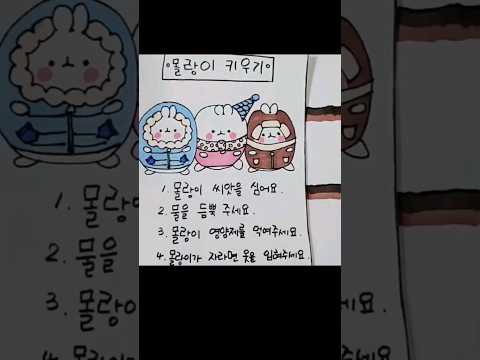 몰랑이 키우기
1. 몰랑이 씨앗을 심어요.
2. 물을 듬뿍 주세요.
3. 몰랑이 영양제를 먹여주세요.
4. 몰랑이가 자라면 옷을 입혀주세요.